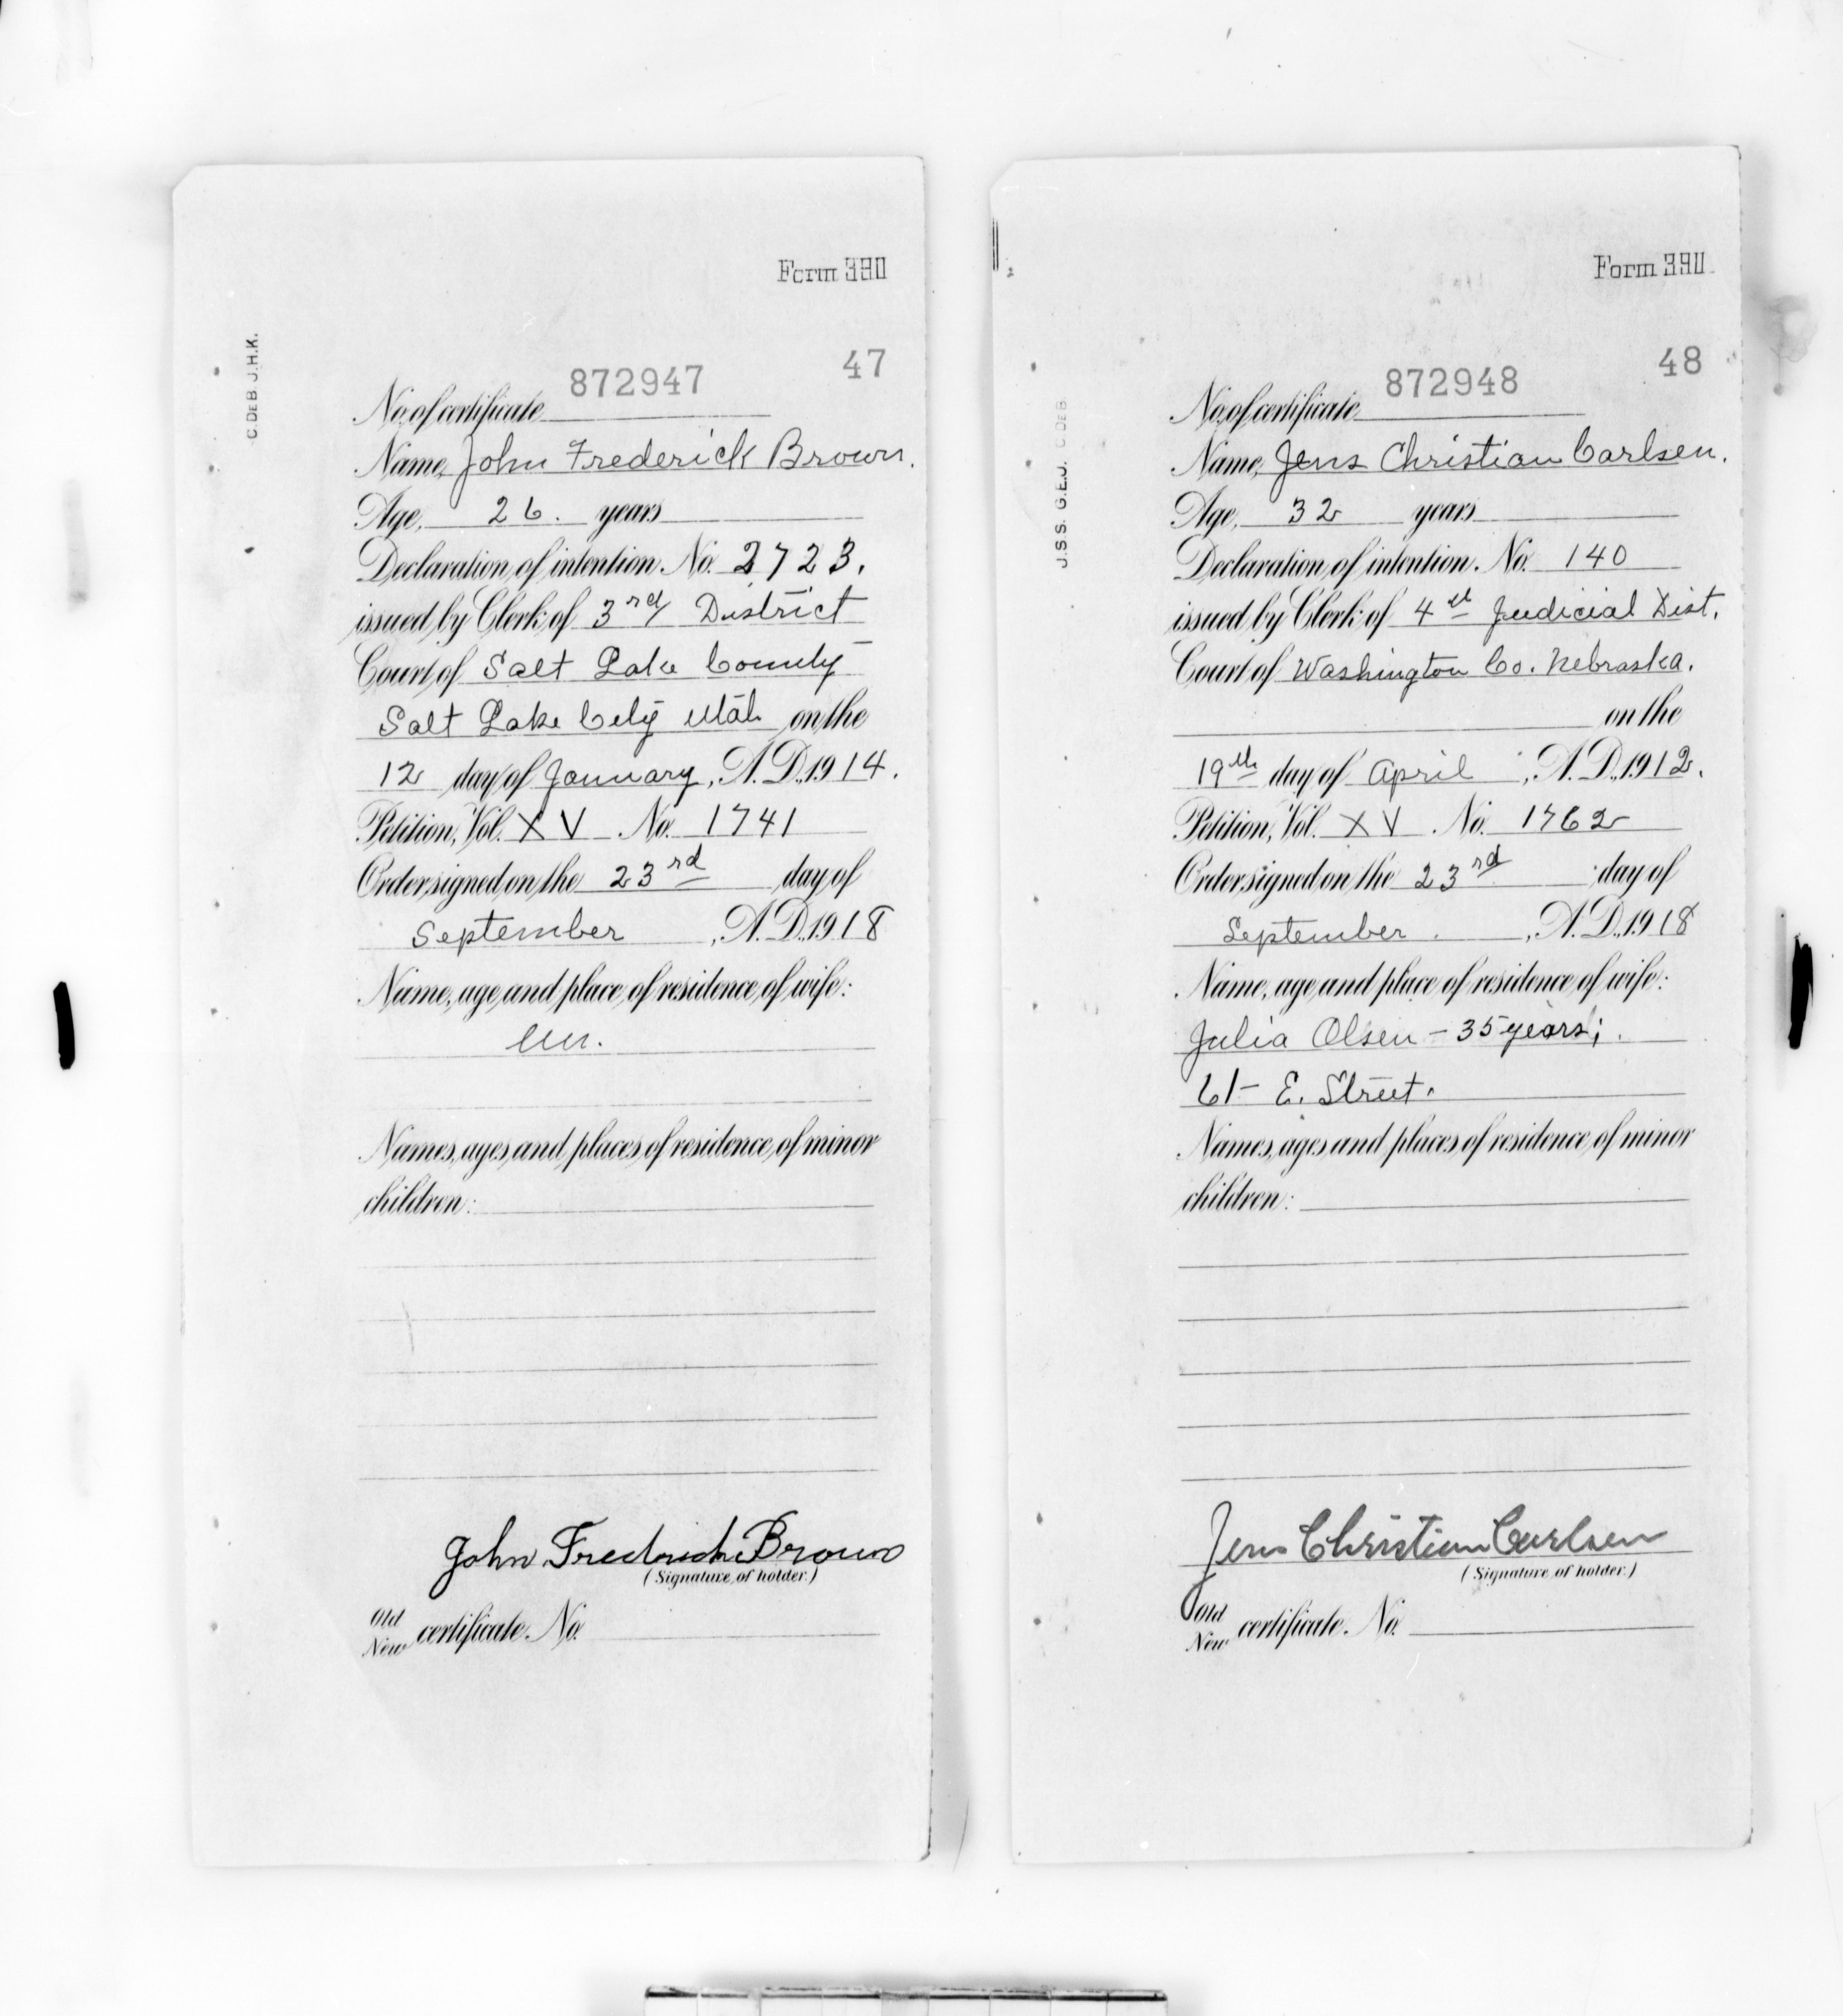 Form 380
C.DEB. J.H.K.
47
872947
No. of certificate
Name, John Frederick Brown.
Age, 26. years
Declaration of intention. No. 2723.
issued by Clerk of 3rd District
Court of Salt Lake County
Salt Lake City Utah on the
12 day of January, A.D. 1914.
Petition, Vol. XV No. 1741
Order signed on the 23rd day of
September, A.D. 1918
Name, age and place of residence of wife:
Un.
Names, ages and places of residence of minor
children:
John Fredrick Brown
(Signature of holder.)
Old
New certificate. No.
Form 390
J.S.S. G.E.J. C.DEB.
48
872948
No. of certificate
Name, Jens Christian Carlsen.
Age, 32 years
Declaration of intention. No. 140
issued by Clerk of 4th Judicial Dist.
Court of Washington Co. Nebraska.
on the
19th day of April, A.D. 1912.
Petition, Vol. XV. No. 1762
Order signed on the 23rd day of
September, A.D. 1918
Name, age and place of residence of wife:
Julia Olsen - 35 years;
61- E. Street.
Names, ages and places of residence of minor
children:
Jens Christian Carlsen
(Signature of holder.)
Old
New certificate. No.